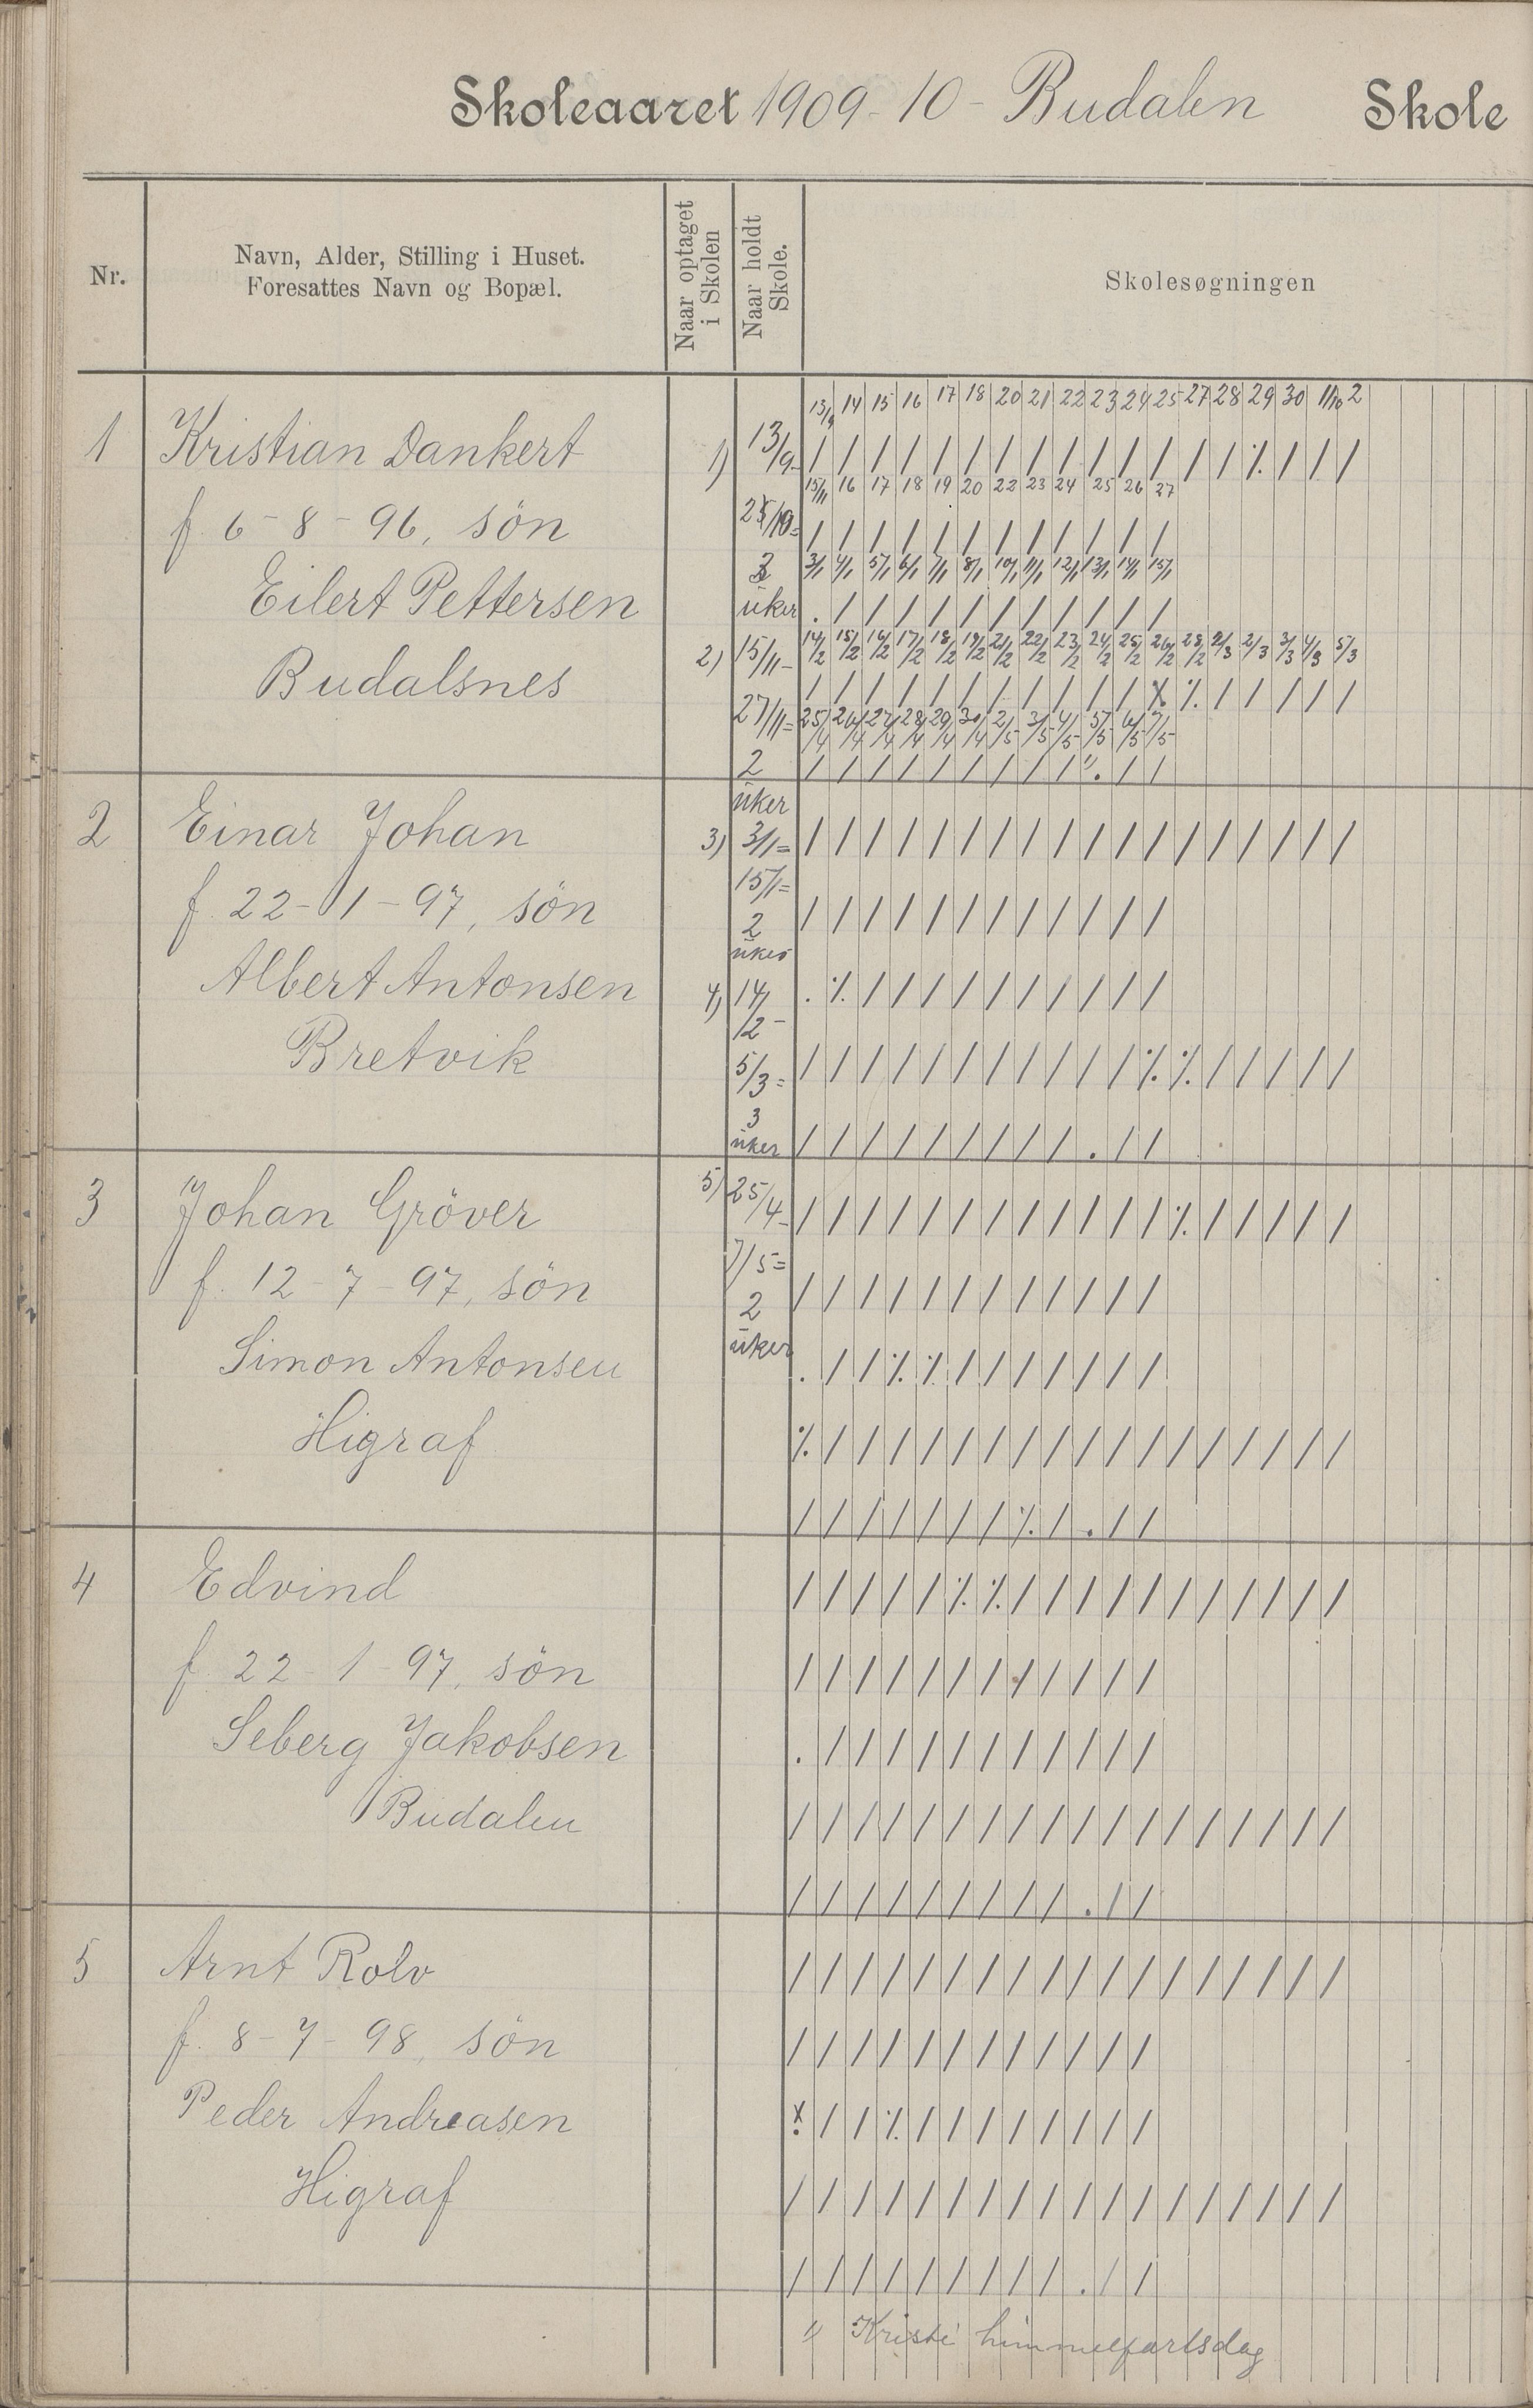 Skoleaaret 1909-10 - Budalen Skole
Nr.
Navn, Alder, Stilling i Huset.
Foresattes Navn og Bopæl.
Naar optaget
i Skolen
Naar holdt
Skole.
Skolesøgningen
13/9 14 15 16 17 18 20 21 22 23 24 25 27 28 29 30 1/10 2
1 Kristian Dankert 1) 13/9- / / / / / / / / / / / / / / ٪ / / /
15/11 16 17 18 19 20 22 23 24 25 26 27
f. 6-8-96, sön / / / / / / / / / / / /
3/1 4/1 5/1 6/1 7/1 8/1 10/1 11/1 12/1 13/1 14/1 15/1
Eilert Pettersen uker . / / / / / / / / / / /
2) 15/11- 14/2 15/2 16/2 17/2 18/2 19/2 21/2 22/2 23/2 24/2 25/2 26/2 28/2 2/3 3/3 4/3 5/3
Budalsnes
27/11= 25/4 26/4 27/4 28/4 29/4 30/4 2/5 3/5 4/5 5/5 6/5 7/5
2 / / / / / / / / / 1). / /
uker
2 Einar Johan 3) 3/1= / / / / / / / / / / / / / / / / / /
15/1=
f. 22-1-97, sön 2 / / / / / / / / / / / /
uker
Albert Antonsen 4) 14/2- . ٪ / / / / / / / / / /
Bretvik 5/3= / / / / / / / / / / / ٪ ٪ / / / / /
3
uker / / / / / / / / / . / /
3 Johan Gröver 5) 25/4- / / / / / / / / / / / / ٪ / / / / /
7/5=
f. 12-7-97, sön 2 / / / / / / / / / / / /
uker
Simon Antonsen . / / ٪ ٪ / / / / / / /
Higraf ٪ / / / / / / / / / / / / / / / / /
/ / / / / / / ٪ / . / /
4 Edvind / / / / / ٪ ٪ / / / / / / / / / / /
f. 22-1-97, sön / / / / / / / / / / / /
Seberg Jakobsen . / / / / / / / / / / /
Budalen / / / / / / / / / / / / / / / / / /
/ / / / / / / / / . / /
5 Arnt Rolv / / / / / / / / / / / / / / / / / /
f. 8-7-98, sön / / / / / / / / / / / /
Peder Andreasen x / / ٪ / / / / / / / /
Higraf / / / / / / / / / / / / / / / / / /
/ / / / / / / / / . / /
1) Kristi himmelfartsdag